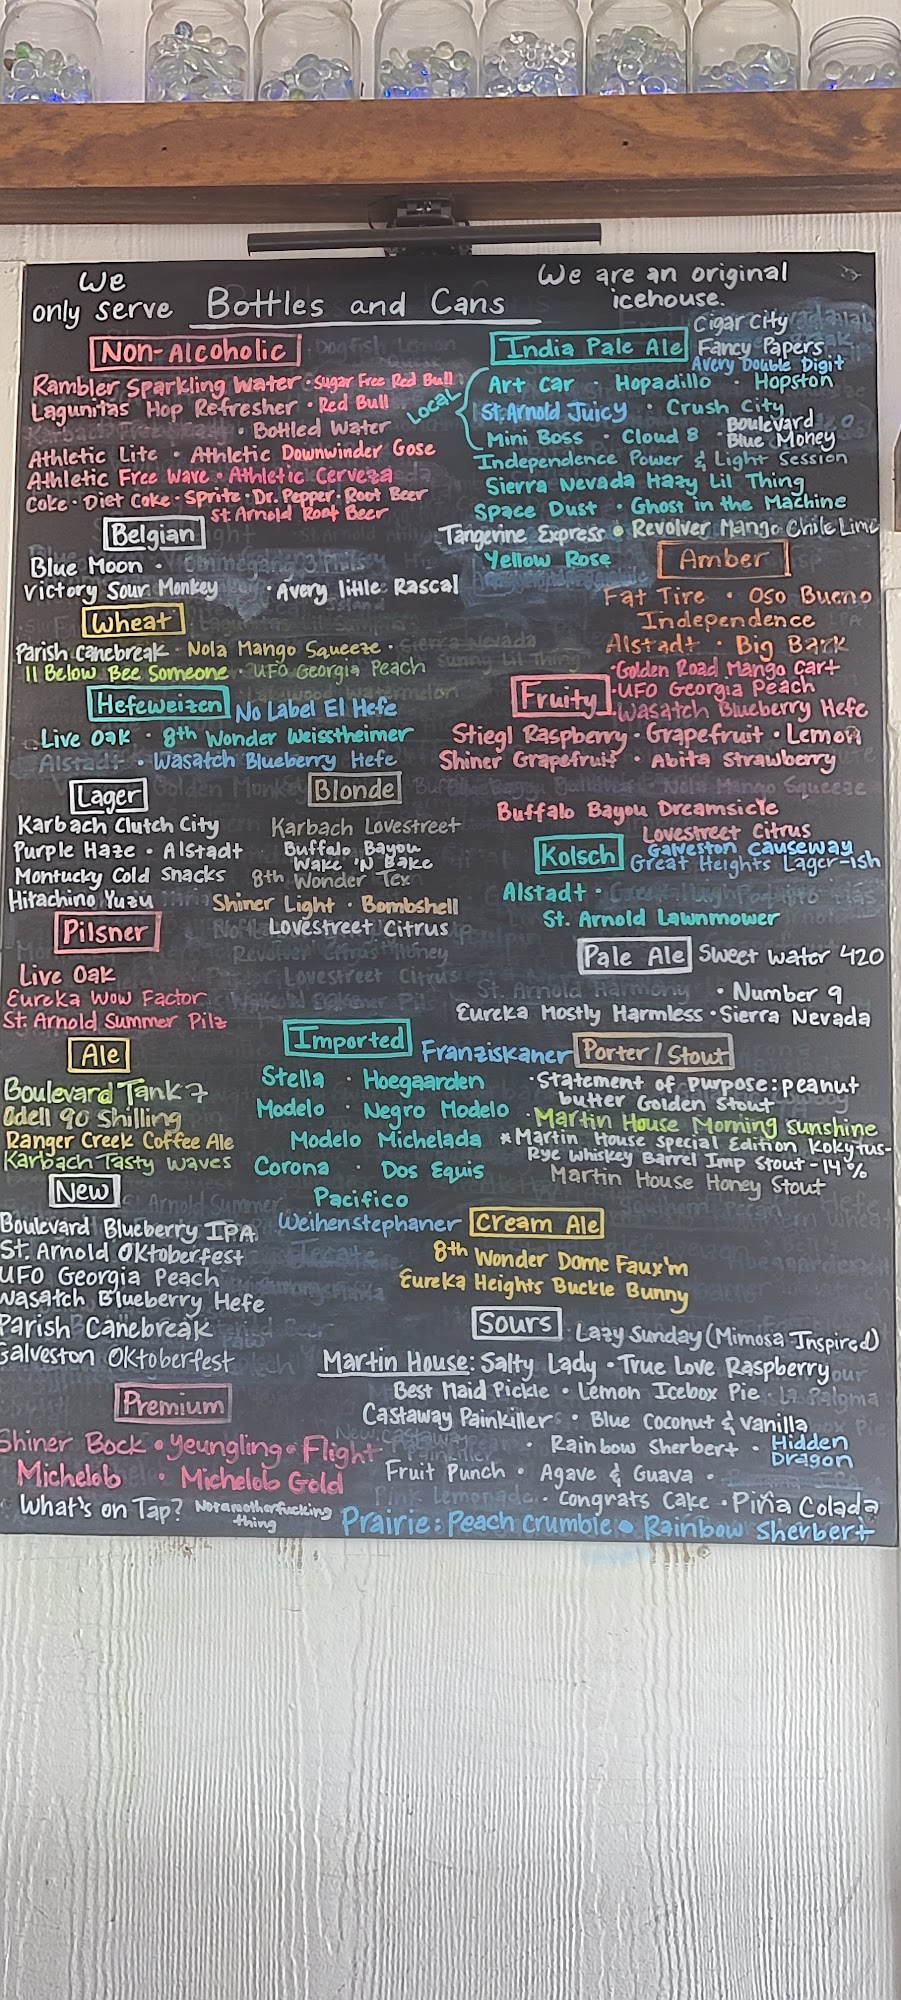 We
only serve
Bottles and Cans
We are an original
icehouse.
Non-Alcoholic
Rambler Sparkling Water · Sugar Free Red Bull
Lagunitas Hop Refresher · Red Bull
· Bottled Water
Athletic Lite · Athletic Downwinder Gose
Athletic Free Wave · Athletic Cerveza
Coke · Diet Coke · Sprite · Dr. Pepper · Root Beer
St. Arnold Root Beer
Belgian
Blue Moon ·
Victory Sour Monkey · Avery little Rascal
Wheat
Parish Canebreak · Nola Mango Squeeze · Sierra Nevada
Sunny Lil Thing
11 Below Bee Someone · UFO Georgia Peach
Hefeweizen
No Label El Hefe
Live Oak · 8th Wonder Weisstheimer
Alstadt · Wasatch Blueberry Hefe
Lager
Karbach Clutch City
Purple Haze · Alstadt
Montucky Cold Snacks
Hitachino Yuzu
Blonde
Karbach Lovestreet
Buffalo Bayou
Wake 'N Bake
8th Wonder Tex
Shiner Light · Bombshell
Lovestreet Citrus
Pilsner
Live Oak
Eureka Wow Factor
St. Arnold Summer Pilz
Ale
Boulevard Tank 7
Odell 90 Shilling
Ranger Creek Coffee Ale
Karbach Tasty Waves
New
Boulevard Blueberry IPA
St. Arnold Oktoberfest
UFO Georgia Peach
Wasatch Blueberry Hefe
Parish Canebreak
Galveston Oktoberfest
Premium
Shiner Bock · Yeungling · Flight
Michelob · Michelob Gold
What's on Tap? Notanotherfucking
thing
Imported
Franziskaner
Stella · Hoegaarden
Modelo · Negro Modelo
Modelo Michelada
Corona · Dos Equis
Pacifico
Weihenstephaner
India Pale Ale
Cigar City
Fancy Papers
Avery Double Digit
Local
Art Car · Hopadillo · Hopston
St. Arnold Juicy · Crush City
Mini Boss · Cloud 8 · Boulevard
Blue Money
Independence Power & Light Session
Sierra Nevada Hazy Lil Thing
Space Dust · Ghost in the Machine
Tangerine Express · Revolver Mango Chile Lime
Yellow Rose
Amber
Fat Tire · Oso Bueno
Independence
Alstadt · Big Bark
Fruity
· Golden Road Mango Cart
· UFO Georgia Peach
· Wasatch Blueberry Hefe
Stiegl Raspberry · Grapefruit · Lemon
Shiner Grapefruit · Abita Strawberry
· Nola Mango Squeeze
Buffalo Bayou Dreamsicle
Lovestreet Citrus
Kolsch
Galveston Causeway
Great Heights Lager-ish
Alstadt ·
St. Arnold Lawnmower
Pale Ale
Sweet Water 420
· Number 9
Eureka Mostly Harmless · Sierra Nevada
Porter/Stout
· Statement of purpose: peanut
butter Golden Stout
· Martin House Morning Sunshine
* Martin House special Edition Kokytus-
Rye Whiskey Barrel Imp Stout - 14%
Martin House Honey Stout
Cream Ale
8th Wonder Dome Faux'm
Eureka Heights Buckle Bunny
Sours
Lazy Sunday (Mimosa Inspired)
Martin House: Salty Lady · True Love Raspberry
Best Maid Pickle · Lemon Icebox Pie · La Paloma
Castaway Painkiller · Blue Coconut & Vanilla
· Rainbow Sherbert · Hidden
Dragon
Fruit Punch · Agave & Guava ·
· Congrats Cake · Piña Colada
Prairie: Peach Crumble · Rainbow Sherbert